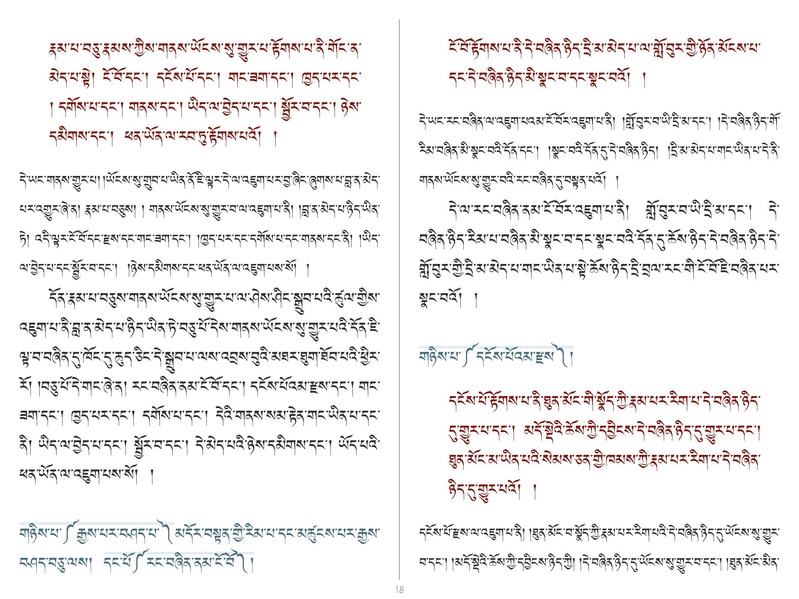 རྣམ་པ་བཅུ་རྣམས་ཀྱིས་གནས་ཡོངས་སུ་གྱུར་པ་རྟོགས་པ་ནི་གོང་ན་
མེད་པ་སྟེ། ངོ་བོ་དང་། དངོས་པོ་དང་། གང་ཟག་དང་། ཁྱད་པར་དང་
། དགོས་པ་དང་། གནས་དང་། ཡིད་ལ་བྱེད་པ་དང་། སྦྱོར་བ་དང་། ཉེས་
དམིགས་དང་། ཕན་ཡོན་ལ་རབ་ཏུ་རྟོགས་པའོ། །
དེ་ཡང་གནས་གྱུར་པ། །ཡོངས་སུ་གྲུབ་པ་ཡིན་ནོ་ཇི་ལྟར་དེ་ལ་འཇུག་པར་བྱ་ཞིང་ཞུགས་པ་བླ་ན་མེད་
པར་འགྱུར་ཞེ་ན། རྣམ་པ་བཅུས། ། གནས་ཡོངས་སུ་གྱུར་བ་ལ་འཇུག་པ་ནི། །བླ་ན་མེད་པ་ཉིད་ཡིན་
ཏེ། འདི་ལྟར་ངོ་བོ་དང་རྫས་དང་གང་ཟག་དང་། །ཁྱད་པར་དང་དགོས་པ་དང་གནས་དང་ནི། །ཡིད་
ལ་བྱེད་པ་དང་སྦྱོར་བ་དང་། །ཉེས་དམིགས་དང་ཕན་ཡོན་ལ་འཇུག་པས་སོ། །
དོན་རྣམ་པ་བཅུས་གནས་ཡོངས་སུ་གྱུར་པ་ལ་ཤེས་ཤིང་སྒྲུབ་པའི་ཚུལ་གྱིས་
འཇུག་པ་ནི་བླ་ན་མེད་པ་ཉིད་ཡིན་ཏེ་བཅུ་པོ་དེས་གནས་ཡོངས་སུ་གྱུར་པའི་དོན་ཇི་
ལྟ་བ་བཞིན་དུ་ཁོང་དུ་ཆུད་ཅིང་དེ་སྒྲུབ་པ་ལས་འབྲས་བུའི་མཐར་ཐུག་ཐོབ་པའི་ཕྱིར་
རོ། །བཅུ་པོ་དེ་གང་ཞེ་ན། རང་བཞིན་ནམ་ངོ་བོ་དང་། དངོས་པོའམ་རྫས་དང་། གང་
ཟག་དང་། ཁྱད་པར་དང་། དགོས་པ་དང་། དེའི་གནས་སམ་རྟེན་གང་ཡིན་པ་དང་
ནི། ཡིད་ལ་བྱེད་པ་དང་། སྦྱོར་བ་དང་། དེ་མེད་པའི་ཉེས་དམིགས་དང་། ཡོད་པའི་
ཕན་ཡོན་ལ་འཇུག་པས་སོ། །
གཉིས་པ་༼རྒྱས་པར་བཤད་པ་༽མདོར་བསྟན་གྱི་རིམ་པ་དང་མཚུངས་པར་རྒྱས་
བཤད་བཅུ་ལས། དང་པོ༼རང་བཞིན་ནམ་ངོ་བོ༽།
ངོ་བོ་རྟོགས་པ་ནི་དེ་བཞིན་ཉིད་དྲི་མ་མེད་པ་ལ་གློ་བུར་གྱི་ཉོན་མོངས་པ་
དང་དེ་བཞིན་ཉིད་མི་སྣང་བ་དང་སྣང་བའོ། །
དེ་ཡང་རང་བཞིན་ལ་འཇུག་པའམ་ངོ་བོར་འཇུག་པ་ནི། །གློ་བུར་བ་ཡི་དྲི་མ་དང་། །དེ་བཞིན་ཉིད་གོ་
རིམ་བཞིན་མི་སྣང་བའི་དོན་དང་། །སྣང་བའི་དོན་དུ་དེ་བཞིན་ཉིད། །དྲི་མ་མེད་པ་གང་ཡིན་པ་དེ་ནི་
གནས་ཡོངས་སུ་གྱུར་བའི་རང་བཞིན་དུ་བསྟན་པའོ། །
དེ་ལ་རང་བཞིན་ནམ་ངོ་བོར་འཇུག་པ་ནི། གློ་བུར་བ་ཡི་དྲི་མ་དང་། དེ་
བཞིན་ཉིད་རིམ་པ་བཞིན་མི་སྣང་བ་དང་སྣང་བའི་དོན་དུ་ཆོས་ཉིད་དེ་བཞིན་ཉིད་དེ་
གློ་བུར་གྱི་དྲི་མ་མེད་པ་གང་ཡིན་པ་སྟེ་ཆོས་ཉིད་དྲི་བྲལ་རང་གི་ངོ་བོ་ཇི་བཞིན་པར་
སྣང་བའོ། །
གཉིས་པ་༼དངོས་པོའམ་རྫས༽།
དངོས་པོ་རྟོགས་པ་ནི་ཐུན་མོང་གི་སྣོད་ཀྱི་རྣམ་པར་རིག་པ་དེ་བཞིན་ཉིད་
དུ་གྱུར་པ་དང་། མདོ་སྡེའི་ཆོས་ཀྱི་དབྱིངས་དེ་བཞིན་ཉིད་དུ་གྱུར་པ་དང་།
ཐུན་མོང་མ་ཡིན་པའི་སེམས་ཅན་གྱི་ཁམས་ཀྱི་རྣམ་པར་རིག་པ་དེ་བཞིན་
ཉིད་དུ་གྱུར་པའོ། །
དངོས་པོ་རྫས་ལ་འཇུག་པ་ནི། །ཐུན་མོང་བ་སྣོད་ཀྱི་རྣམ་པར་རིག་པའི་དེ་བཞིན་ཉིད་དུ་ཡོངས་སུ་གྱུར་
བ་དང་། །མདོ་སྡེའི་ཆོས་ཀྱི་དབྱིངས་ཉིད་ཀྱི། །དེ་བཞིན་ཉིད་དུ་ཡོངས་སུ་གྱུར་བ་དང་། །ཐུན་མོང་མིན་
18